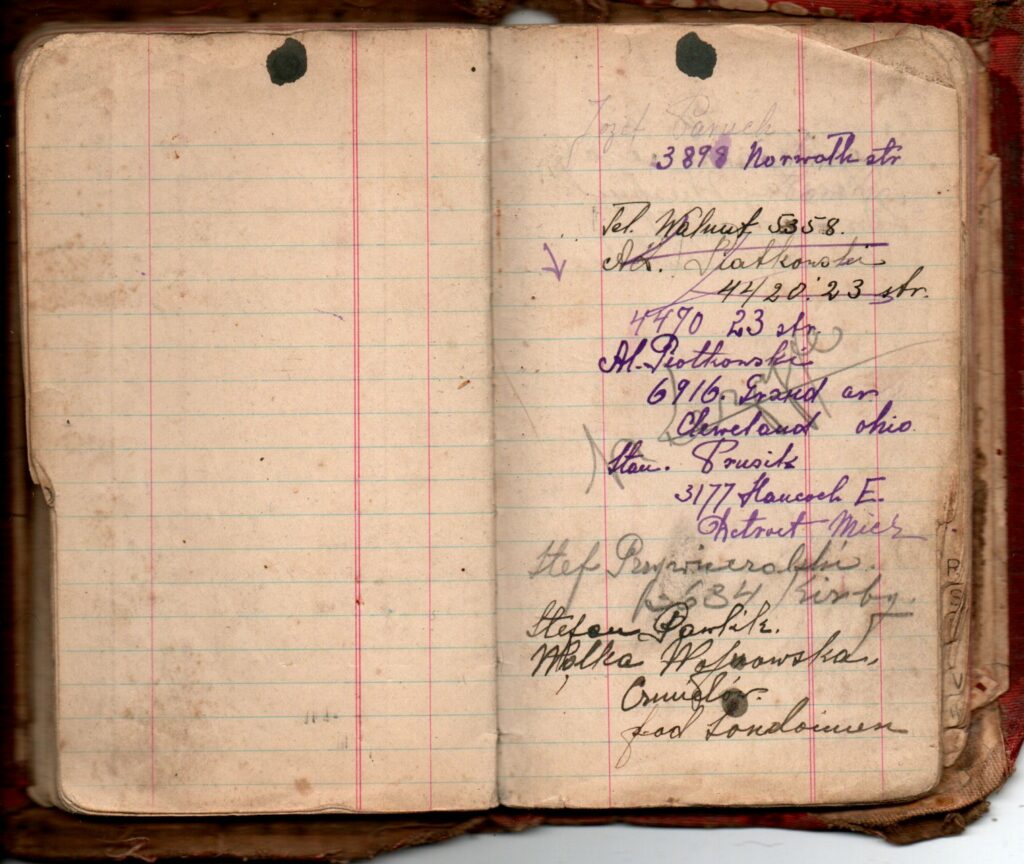 Jozef Paruch
3898 Norwoth str
Tel. Walnut 5358.
Al. Piatkowski
4420. 23 str.
4470 23 str.
Al. Piotkowski
6916. Grand av
Cleweland ohio
Stan. Prusik
3177 Hancock E.
Detroet Mich
Stef
2634 Kirby
Stefan Pawlik.
Wolka Wojnowska,
Osmidór.
pod Sondomien
R
S
V